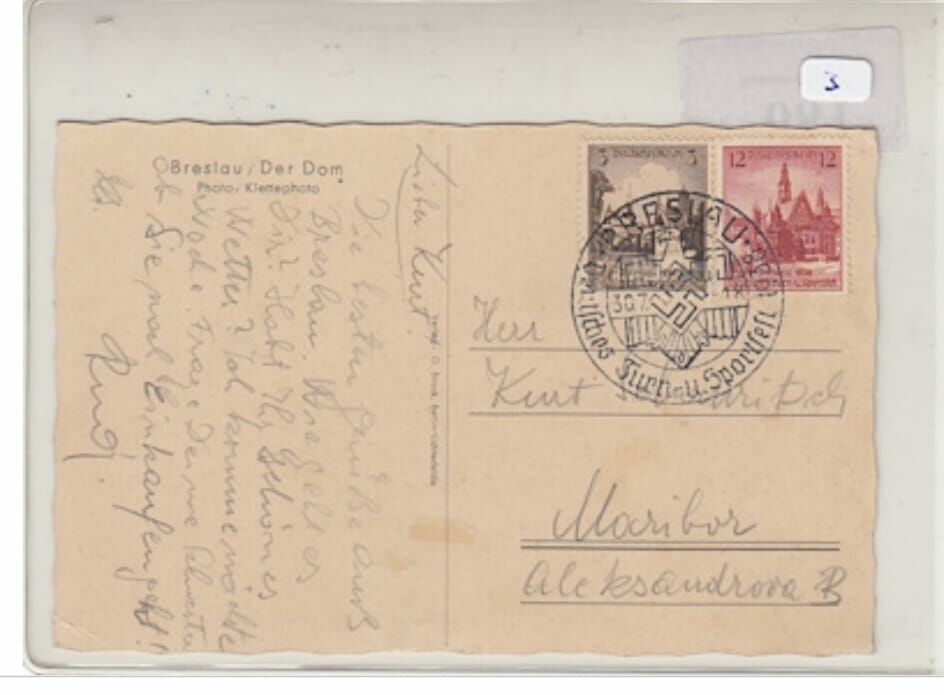 3
Breslau / Der Dom
Photo: Klettephoto
Lieber Kurt!
Die besten Grüße aus
Breslau. Wie geht es
Dir? Habt Ihr schönes
Wetter? Ich komme nächste
Woche. Frage Deine
ob Sie mal Einkaufen geht!
3 Deutsches Reich 3
12 Deutsches Reich 12
BRESLAU
Deutsches Turn- u. Sportfest
30.7.
Herr
Kurt
Maribor
Aleksandrova